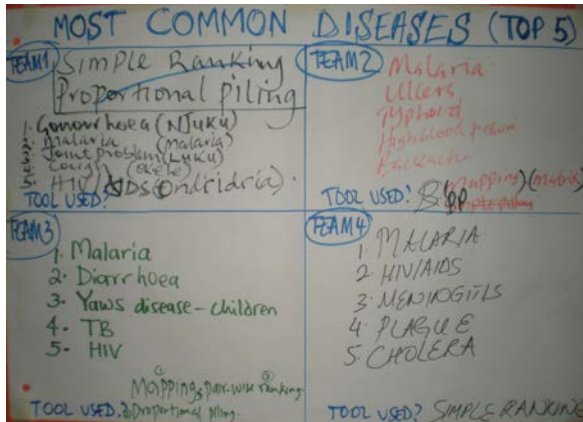 MOST COMMON DISEASES (TOP 5)
TEAM1
Simple Ranking
Proportional piling
1. Gonorrhoea (NJUKU)
2. Malaria (malaria)
3. Joint problem (LUKU)
4. Cough
5. HIV/AIDS
TOOL USED?
TEAM2
Malaria
Ulcers
Typhoid
High blood
Backache
TOOL USED? (Mapping) (matrix)
PP
TEAM3
1. Malaria
2. Diarrhoea
3. Yaws disease - children
4. TB
5. HIV
Mapping, Pair-wise ranking
TOOL USED? Proportional piling.
TEAM4
1. MALARIA
2 HIV/AIDS
3. MENINGITIS
4. PLAGUE
5. CHOLERA
TOOL USED? SIMPLE RANKING